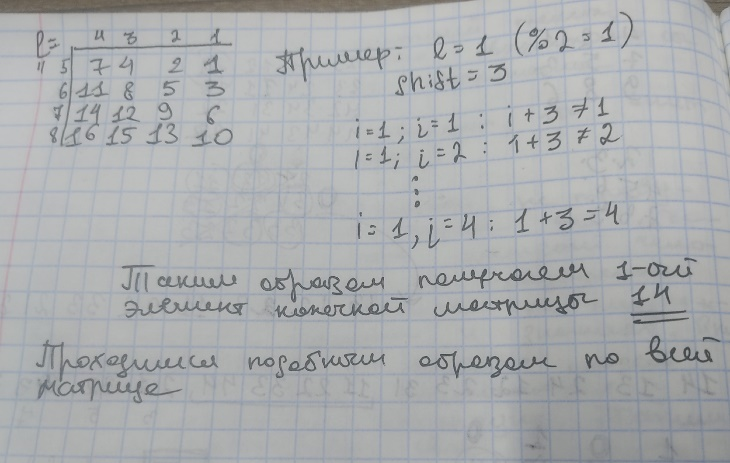 l= 4 3 2 1
4 5 7 4 2 1
6 11 8 5 3
7 14 12 9 6
8 16 15 13 10
Пример: l=1 (%2=1)
shift=3
i=1; j=1 : i+3≠1
i=1; j=2 : i+3≠2
⋮
i=1, j=4: 1+3=4
Таким образом получаем 1-ый
элемент конечной матрицы 14
Проходимся подобным образом по всей
матрице